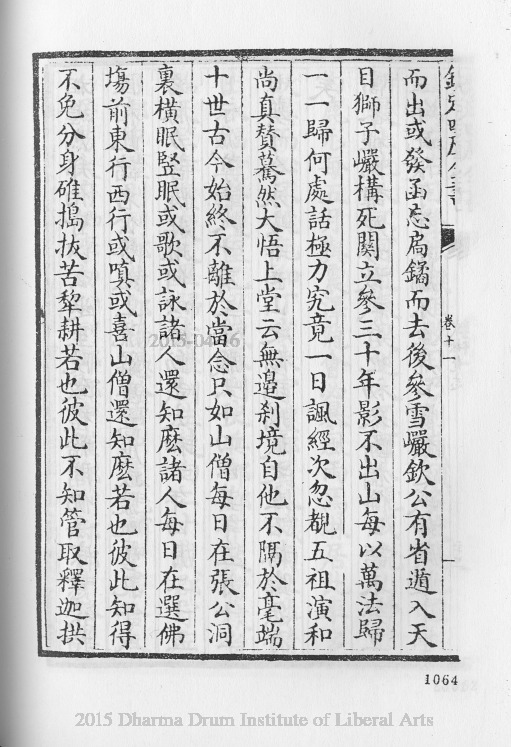 欽定四庫全書
卷十一
而出或發函忘扃鐍而去後參雪巖欽公有省遁入天
目獅子巖構死關立參三十年影不出山每以萬法歸
一一歸何處話極力究竟一日諷經次忽覩五祖演和
尚真贊驀然大悟上堂云無邉刹境自他不隔於毫端
十世古今始終不離於當念只如山僧每日在張公洞
裏橫眠竪眠或歌或詠諸人還知麽諸人每日在選佛
塲前東行西行或嗔或喜山僧還知麽若也彼此知得
不免分身碓搗抜苦犂耕若也彼此不知管取釋迦拱
1064
2015-04-16
2015 Dharma Drum Institute of Liberal Arts